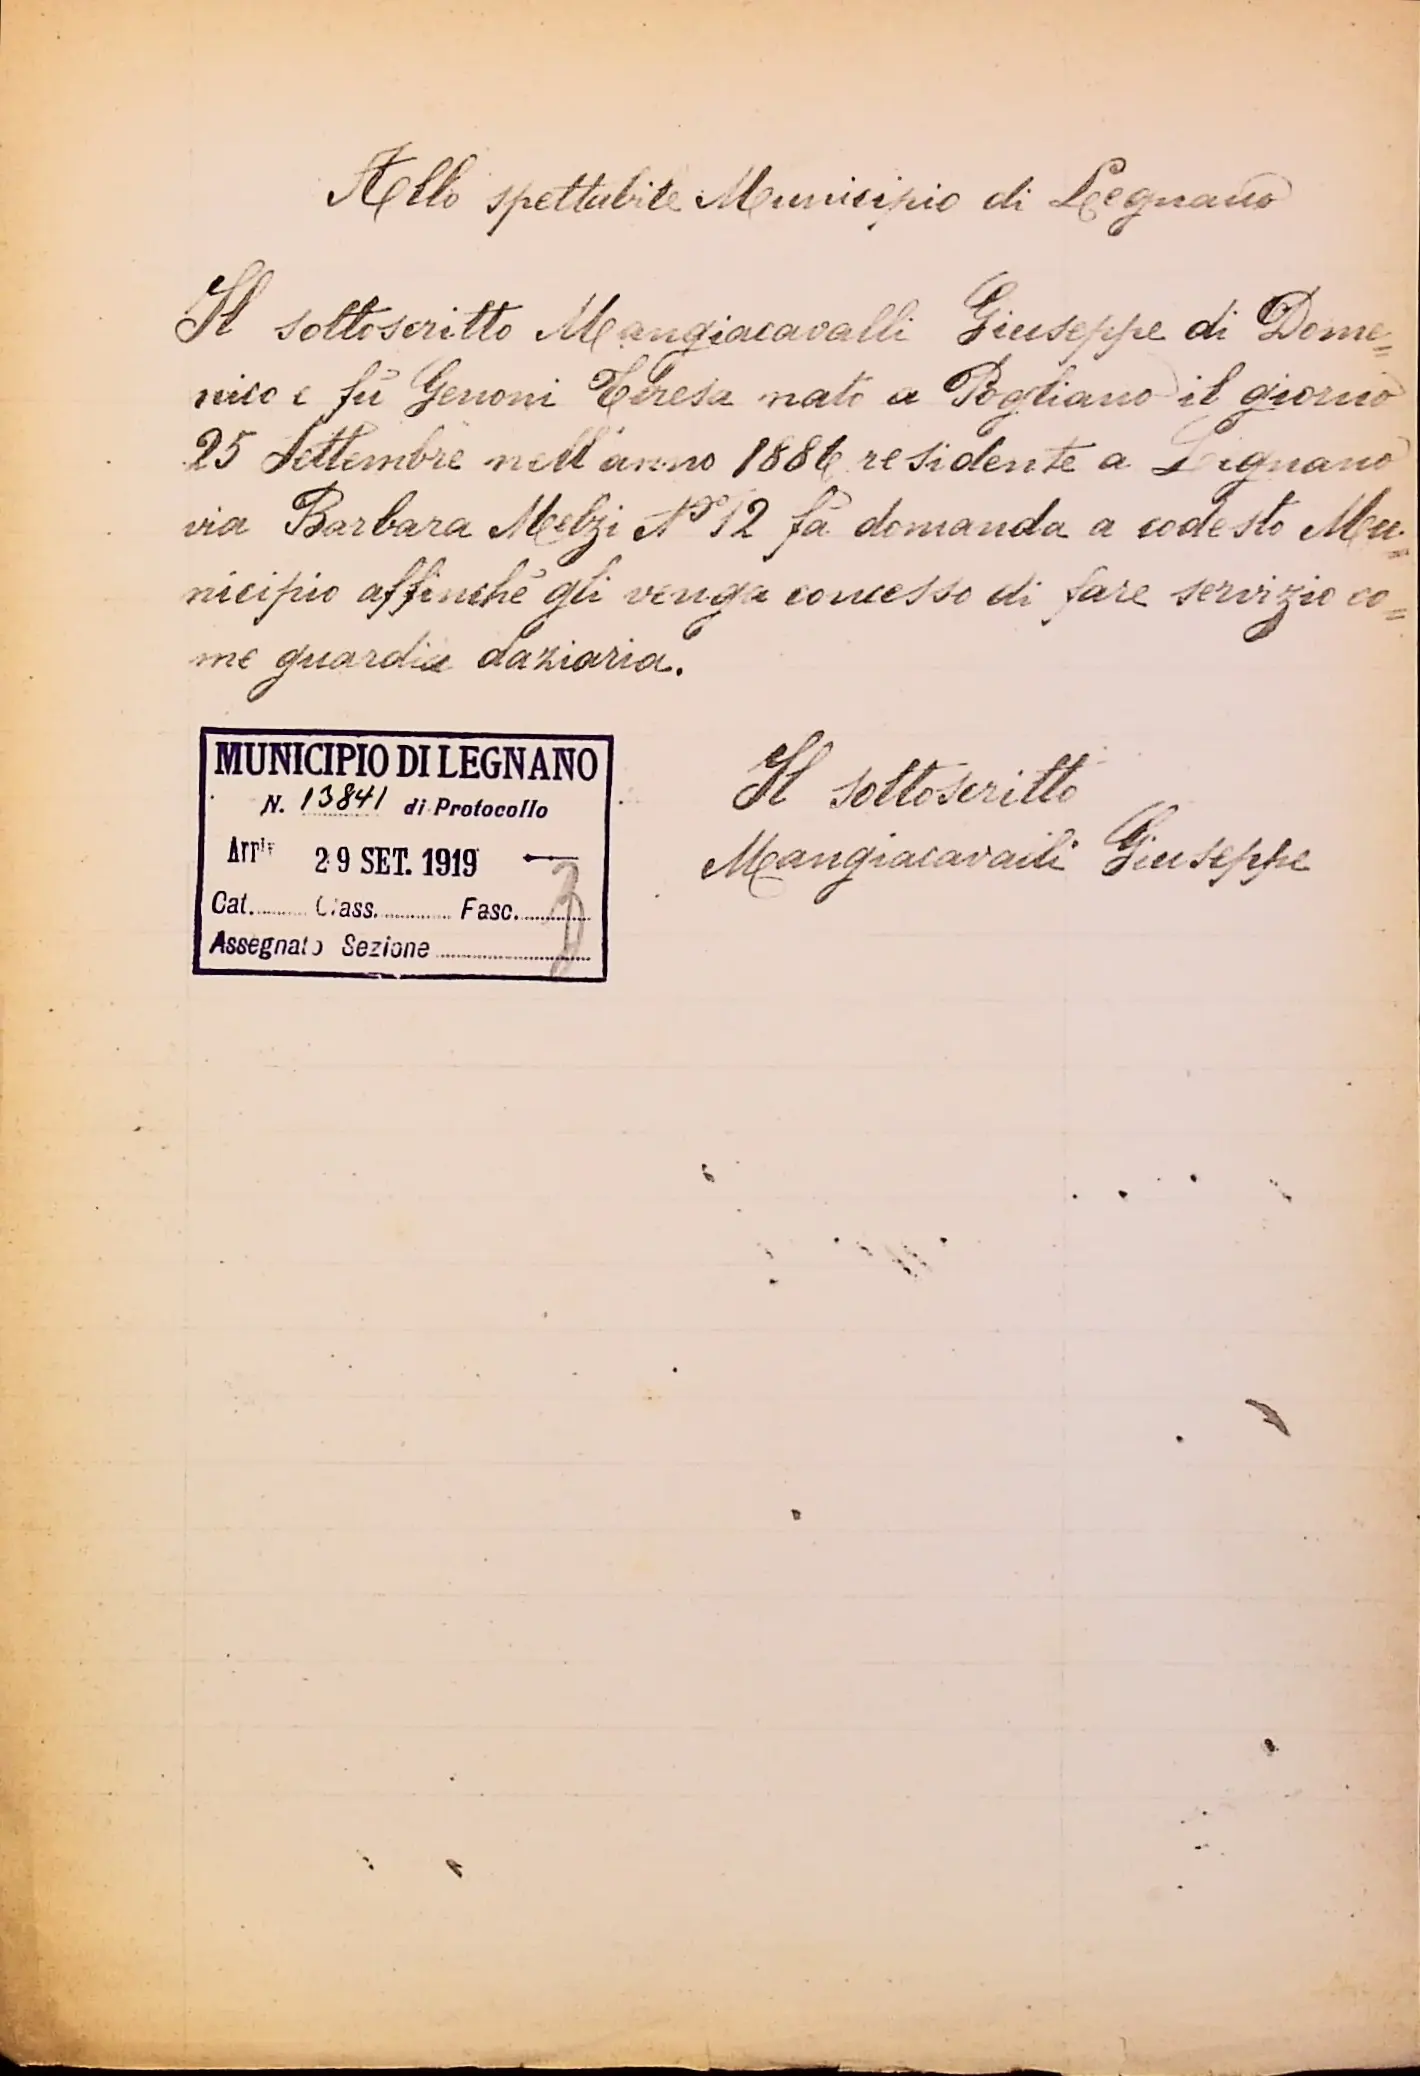 Allo spettabile Municipio di Legnano
Il sottoscritto Mangiacavalli Giuseppe di Dome=
nico e fù Genoni Teresa nato a Pogliano il giorno
25 Settembre nell'anno 1886 residente a Legnano
via Barbara Melzi No 12 fà domanda a codesto Mu=
nicipio affinchè gli venga concesso di fare servizio co=
me guardia daziaria.
Il sottoscritto
Mangiacavalli Giuseppe
MUNICIPIO DI LEGNANO
N. 13841 di Protocollo
Arriv 29 SET. 1919
Cat. Class. Fasc.
Assegnato Sezione